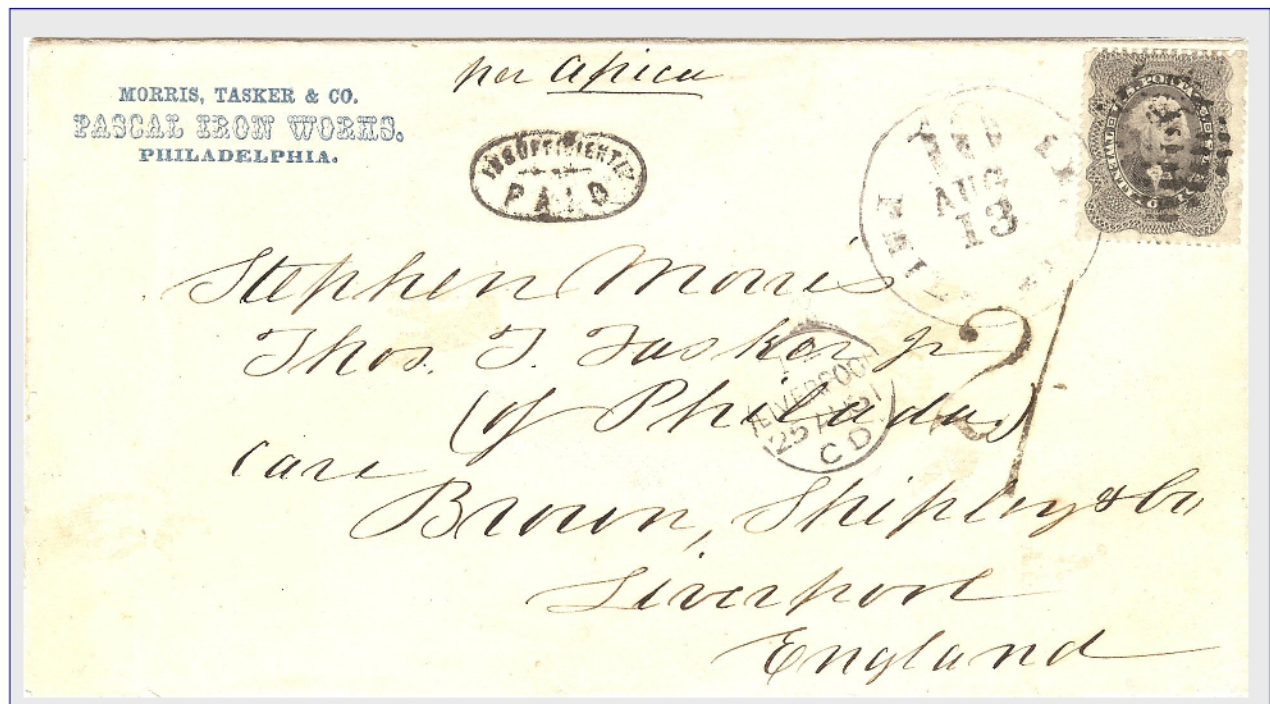 per Africa
MORRIS, TASKER & CO.
PASCAL IRON WORKS.
PHILADELPHIA.
INSUFFICIENTLY
PAID
AUG
13
Stephen Morris
Thos. T. Tasker Jr
(of Philada)
Care
Brown, Shipley & Co
Liverpool
England
LIVERPOOL
25 AU 61
CD